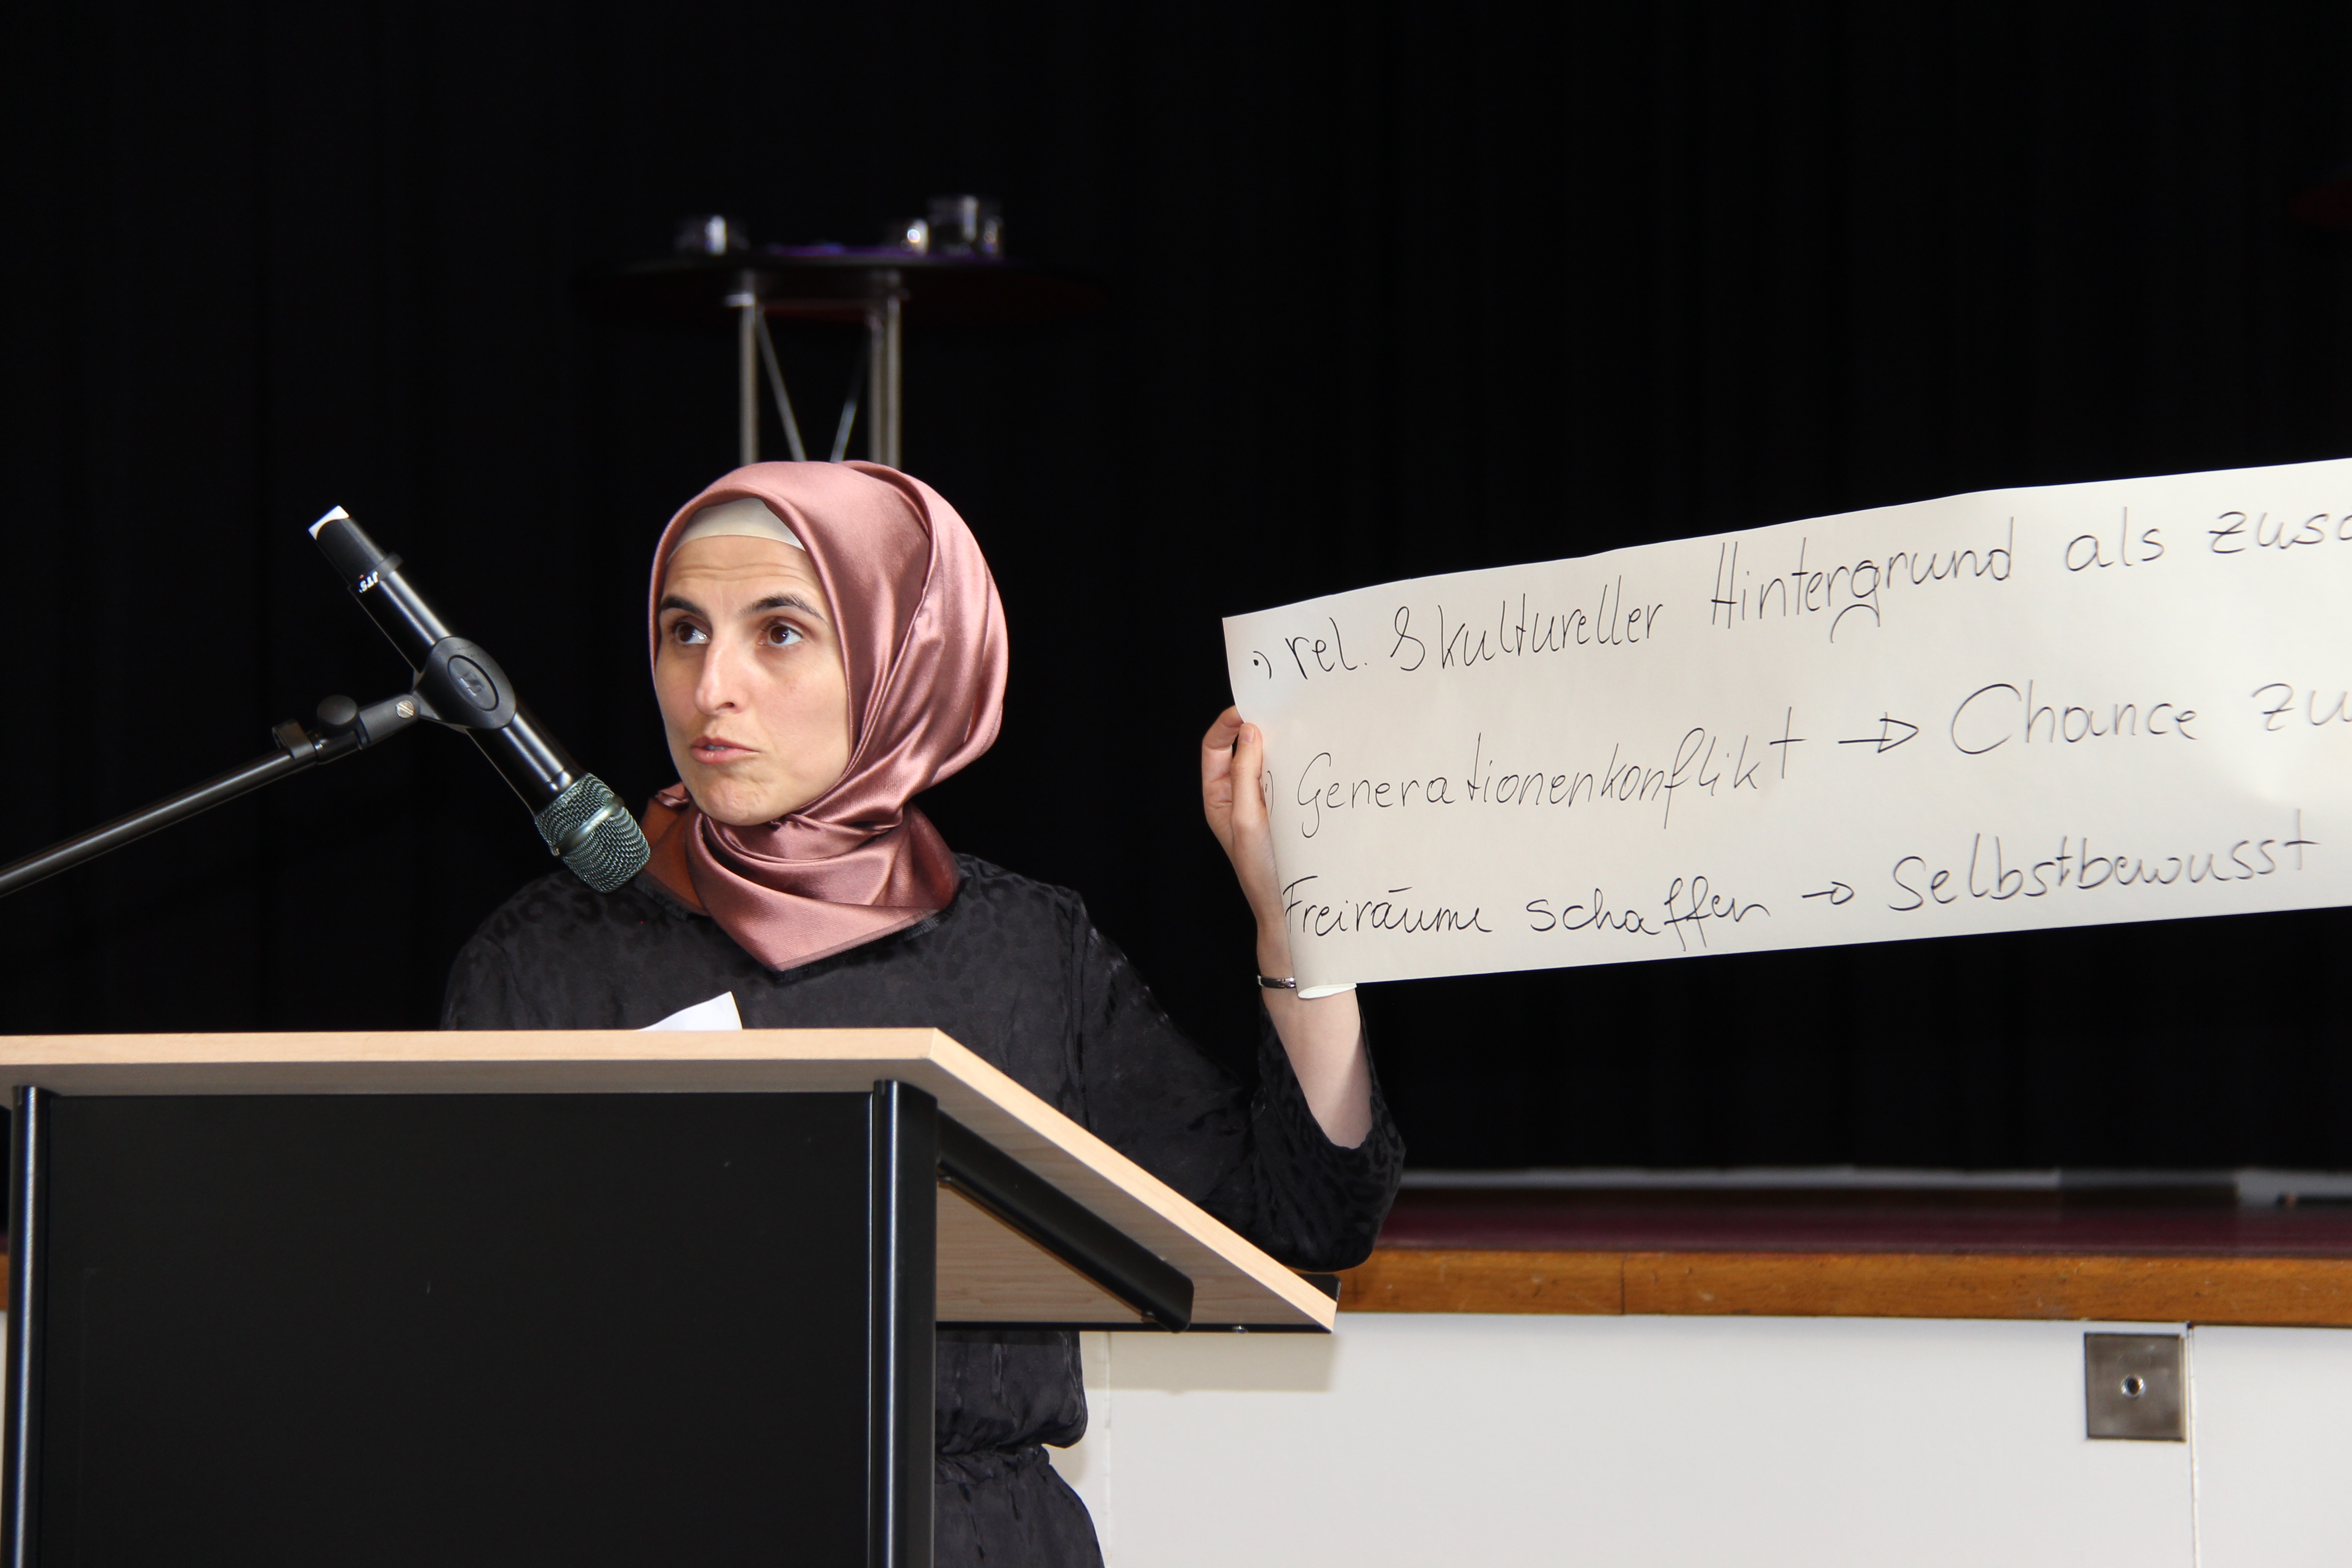 •) rel. & kultureller Hintergrund als
•) Generationenkonflikt → Chance zu
Freiräume schaffen → Selbstbewusst